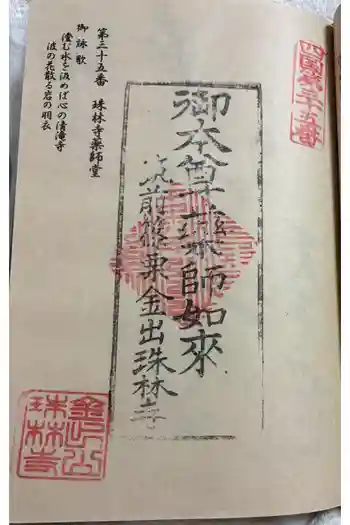 四国第三十五番
御本尊薬師如来
筑前篠栗金出珠林寺
第三十五番　珠林寺薬師堂
御詠歌
澄む水を汲めば心の清滝寺
波の花散る岩の羽衣
金出山
珠林寺